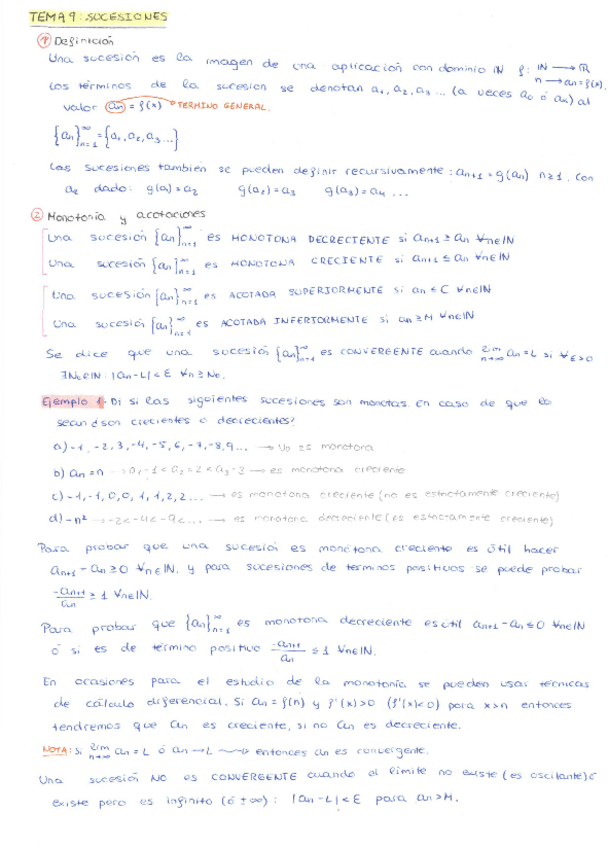 TEMA 9: SUCESIONES
① Definición
Una sucesión es la imagen de una aplicación con dominio ℕ f: ℕ → ℝ
n → an = f(x)
Los términos de la sucesión se denotan a₁, a₂, a₃ ... (a veces a₀ ó aₙ) al
valor aₙ = f(x) → TERMINO GENERAL.
{aₙ}ₙ₌₁^∞ = {a₁, a₂, a₃ ...}
Las sucesiones también se pueden definir recursivamente: aₙ₊₁ = g(aₙ) n≥1. Con
a₂ dado: g(a) = a₂ g(a₂) = a₃ g(a₃) = a₄ ...
② Monotonía y acotaciones
Una sucesión {aₙ}ₙ₌₁^∞ es MONOTONA DECRECIENTE si aₙ₊₁ ≥ aₙ ∀n∈ℕ
Una sucesión {aₙ}ₙ₌₁^∞ es MONOTONA CRECIENTE si aₙ₊₁ ≤ aₙ ∀n∈ℕ
Una sucesión {aₙ}ₙ₌₁^∞ es ACOTADA SUPERIORMENTE si aₙ ≤ C ∀n∈ℕ
Una sucesión {aₙ}ₙ₌₁^∞ es ACOTADA INFERIORMENTE si aₙ ≥ M ∀n∈ℕ
Se dice que una sucesión {aₙ}ₙ₌₁^∞ es CONVERGENTE cuando lim n→∞ aₙ = L si ∀ε>0
∃N₀∈ℕ: |aₙ - L| < ε ∀n ≥ N₀.
Ejemplo 1. Di si las siguientes sucesiones son monotas. En caso de que lo
sean ¿son crecientes o decrecientes?
a) -1, -2, 3, -4, -5, 6, -7, -8, 9... → No es monotona
b) aₙ = n → a₁ = 1 < a₂ = 2 < a₃ = 3 → es monotona creciente
c) -1, -1, 0, 0, 1, 1, 2, 2... → es monotona creciente (no es estrictamente creciente)
d) -n² → -2 < -4 < -9 <... → es monotona decreciente (es estrictamente creciente)
Para probar que una sucesión es monótona creciente es útil hacer
aₙ₊₁ - aₙ ≥ 0 ∀n∈ℕ. y para sucesiones de terminos positivos se puede probar
-aₙ₊₁/aₙ ≥ 1 ∀n∈ℕ.
Para probar que {aₙ}ₙ₌₁^∞ es monotona decreciente es útil aₙ₊₁ - aₙ ≤ 0 ∀n∈ℕ
ó si es de término positivo -aₙ₊₁/aₙ ≤ 1 ∀n∈ℕ.
En ocasiones para el estudio de la monotonía se pueden usar técnicas
de cálculo diferencial. Si aₙ = f(n) y f'(x)>0 (f'(x)<0) para x>n entonces
tendremos que aₙ es creciente, si no aₙ es decreciente.
NOTA: Si lim n→∞ aₙ = L ó aₙ → L ⇝ entonces an es convergente.
Una sucesión NO es CONVERGENTE cuando el límite no existe (es oscilante) ó
existe pero es infinito (ó ±∞): |aₙ - L| < E para aₙ > M.